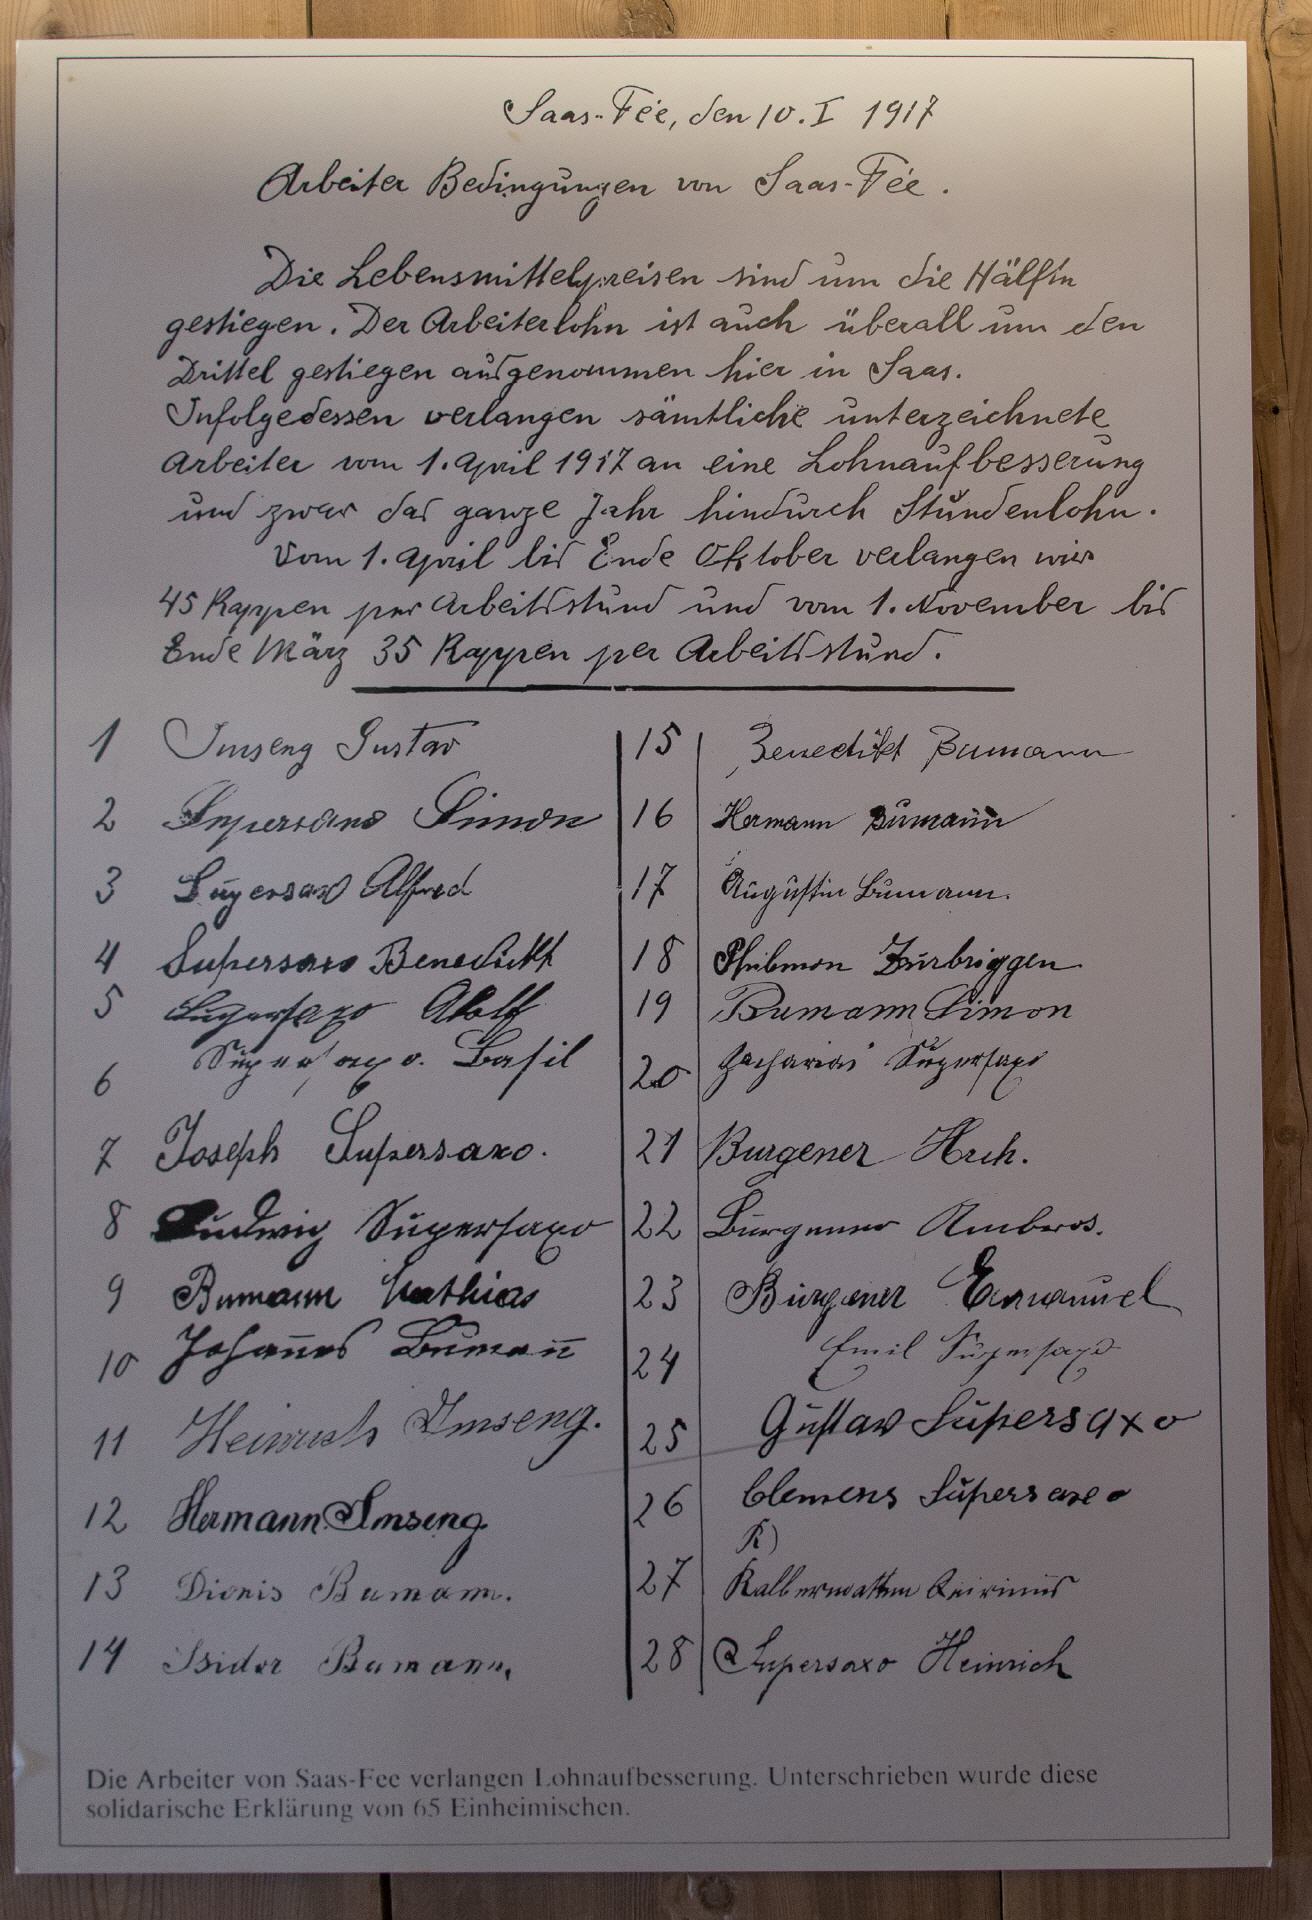 Saas-Fée, den 10. I 1917
Arbeiter Bedingungen von Saas-Fée.
Die Lebensmittelpreisen sind um die Hälfin
gestiegen. Der Arbeiterlohn ist auch überall um den
Drittel gestiegen ausgenommen hier in Saas.
Infolgedessen verlangen sämtliche unterzeichnete
Arbeiter vom 1. April 1917 an eine Lohnaufbesserung
und zwar das ganze Jahr hindurch Stundenlohn.
Vom 1. April bis Ende Oktober verlangen wir
45 Rappen per Arbeitsstund und vom 1. November bis
Ende März 35 Rappen per Arbeitsstund.
1 Imseng Gustav
2 Supersaxo Simon
3 Supersaxo Alfred
4 Supersaxo Benedickt
5 Supersaxo Adolf
6 Supersaxo. Basil
7 Joseph Supersaxo.
8 Ludwig Supersaxo
9 Bumann Mathias
10 Johannes Buman̄
11 Heinrich Imseng.
12 Hermann Imseng
13 Dionis Bumann.
14 Isidor Bumann,
15 Benedikt Bumann
16 Hermann Bumann
17 Augustin Bumann.
18 Philemon Zurbriggen
19 Bumann Simon
20 Zacharias Supersaxo
21 Burgener Hrch.
22 Burgener Ambros.
23 Burgener Emanuel
24 Emil Supersaxo
25 Gustav Supersaxo
26 Clemens Supersaxo
R)
27 Kalbermatten Quirinus
28 Supersaxo Heinrich
Die Arbeiter von Saas-Fee verlangen Lohnaufbesserung. Unterschrieben wurde diese
solidarische Erklärung von 65 Einheimischen.